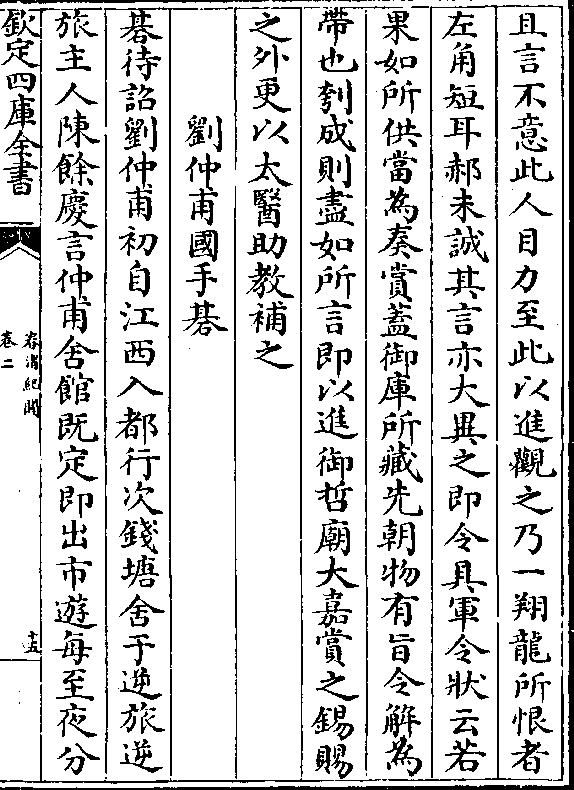 且言不意此人目力至此以進觀之乃一翔龍所恨者
左角短耳郝未誠其言亦大異之即令具軍令狀云若
果如所供當為奏賞蓋御庫所藏先朝物有旨令解為
帶也刳成則盡如所言即以進御哲廟大嘉賞之錫賜
之外更以太醫助教補之
劉仲甫國手棊
棊待詔劉仲甫初自江西入都行次錢塘舍于逆旅逆
旅主人陳餘慶言仲甫舍館既定即出市遊每至夜分
欽定四庫全書
春渚紀聞
卷二
十五